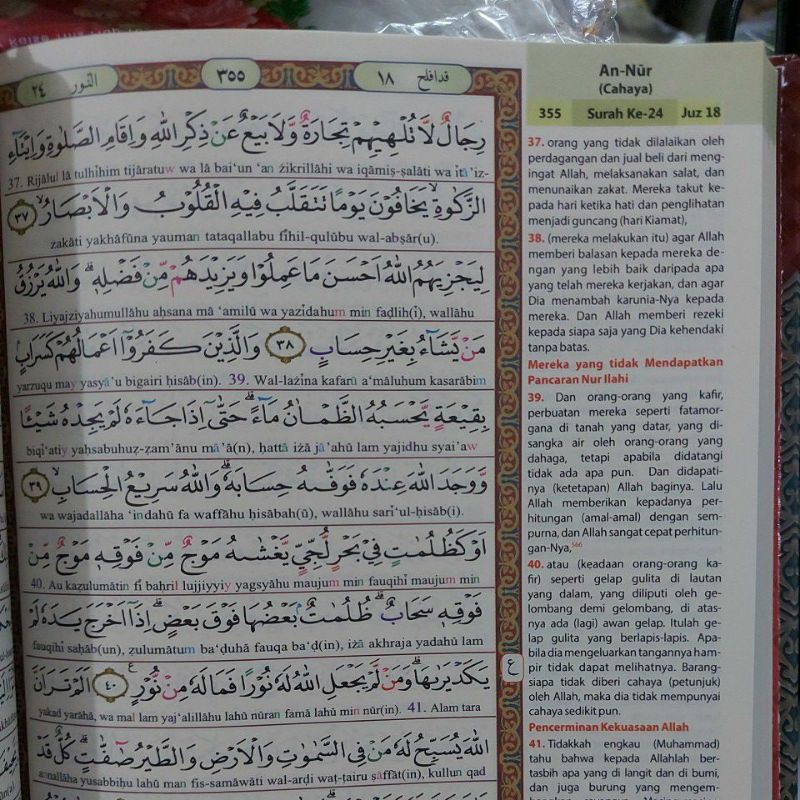 النور ٢٤
٣٥٥
قدافلح ١٨
رِجَالٌ لَّا تُلْهِيْهِمْ تِجَارَةٌ وَّلَا بَيْعٌ عَنْ ذِكْرِ اللّٰهِ وَاِقَامِ الصَّلٰوةِ وَاِيْتَاۤءِ
37. Rijālul lā tulhīhim tijāratuw wa lā bai‘un ‘an żikrillāhi wa iqāmiṣ-ṣalāti wa ītā'iz-
الزَّكٰوةِ ۙيَخَافُوْنَ يَوْمًا تَتَقَلَّبُ فِيْهِ الْقُلُوْبُ وَالْاَبْصَارُ ۙ ٣٧
zakāti yakhāfūna yauman tataqallabu fīhil-qulūbu wal-abṣār(u).
لِيَجْزِيَهُمُ اللّٰهُ اَحْسَنَ مَا عَمِلُوْا وَيَزِيْدَهُمْ مِّنْ فَضْلِهٖۗ وَاللّٰهُ يَرْزُقُ
38. Liyajziyahumullāhu aḥsana mā ‘amilū wa yazīdahum min faḍlih(ī), wallāhu
مَنْ يَّشَاۤءُ بِغَيْرِ حِسَابٍ ٣٨ وَالَّذِيْنَ كَفَرُوْٓا اَعْمَالُهُمْ كَسَرَابٍ
yarzuqu may yasyā'u bigairi ḥisāb(in). 39. Wal-lażīna kafarū a‘māluhum kasarābim
بِقِيْعَةٍ يَّحْسَبُهُ الظَّمْاٰنُ مَاۤءًۗ حَتّٰٓى اِذَا جَاۤءَهٗ لَمْ يَجِدْهُ شَيْـًٔا
biqī‘atiy yaḥsabuhuẓ-ẓam'ānu mā'ā(n), ḥattā iżā jā'ahū lam yajidhu syai'aw
وَّوَجَدَ اللّٰهَ عِنْدَهٗ فَوَفّٰىهُ حِسَابَهٗ ۗ وَاللّٰهُ سَرِيْعُ الْحِسَابِ ۙ ٣٩
wa wajadallāha ‘indahū fa waffāhu ḥisābah(ū), wallāhu sarī‘ul-ḥisāb(i).
اَوْ كَظُلُمٰتٍ فِيْ بَحْرٍ لُّجِّيٍّ يَّغْشٰىهُ مَوْجٌ مِّنْ فَوْقِهٖ مَوْجٌ مِّنْ
40. Au kaẓulumātin fī baḥril lujjiyyiy yagsyāhu maujum min fauqihī maujum min
فَوْقِهٖ سَحَابٌۗ ظُلُمٰتٌۢ بَعْضُهَا فَوْقَ بَعْضٍۗ اِذَآ اَخْرَجَ يَدَهٗ لَمْ
fauqihī saḥāb(un), ẓulumātum ba‘ḍuhā fauqa ba‘ḍ(in), iżā akhraja yadahū lam
يَكَدْ يَرٰىهَاۗ وَمَنْ لَّمْ يَجْعَلِ اللّٰهُ لَهٗ نُوْرًا فَمَا لَهٗ مِنْ نُّوْرٍ ࣖ ٤٠ اَلَمْ تَرَ اَنَّ
yakad yarāhā, wa mal lam yaj‘alillāhu lahū nūran famā lahū min nūr(in). 41. Alam tara
اللّٰهَ يُسَبِّحُ لَهٗ مَنْ فِى السَّمٰوٰتِ وَالْاَرْضِ وَالطَّيْرُ صٰۤفّٰتٍۗ كُلٌّ قَدْ
annallāha yusabbiḥu lahū man fis-samāwāti wal-arḍi waṭ-ṭairu ṣāffāt(in), kullun qad
ع
An-Nūr
(Cahaya)
355 Surah Ke-24 Juz 18
37. orang yang tidak dilalaikan oleh
perdagangan dan jual beli dari meng-
ingat Allah, melaksanakan salat, dan
menunaikan zakat. Mereka takut ke-
pada hari ketika hati dan penglihatan
menjadi guncang (hari Kiamat),
38. (mereka melakukan itu) agar Allah
memberi balasan kepada mereka de-
ngan yang lebih baik daripada apa
yang telah mereka kerjakan, dan agar
Dia menambah karunia-Nya kepada
mereka. Dan Allah memberi rezeki
kepada siapa saja yang Dia kehendaki
tanpa batas.
Mereka yang tidak Mendapatkan
Pancaran Nur Ilahi
39. Dan orang-orang yang kafir,
perbuatan mereka seperti fatamor-
gana di tanah yang datar, yang di-
sangka air oleh orang-orang yang
dahaga, tetapi apabila didatangi
tidak ada apa pun. Dan didapati-
nya (ketetapan) Allah baginya. Lalu
Allah memberikan kepadanya per-
hitungan (amal-amal) dengan sem-
purna, dan Allah sangat cepat perhitun-
gan-Nya,⁵⁶⁶
40. atau (keadaan orang-orang ka-
fir) seperti gelap gulita di lautan
yang dalam, yang diliputi oleh ge-
lombang demi gelombang, di atas-
nya ada (lagi) awan gelap. Itulah ge-
lap gulita yang berlapis-lapis. Apa-
bila dia mengeluarkan tangannya ham-
pir tidak dapat melihatnya. Barang-
siapa tidak diberi cahaya (petunjuk)
oleh Allah, maka dia tidak mempunyai
cahaya sedikit pun.
Pencerminan Kekuasaan Allah
41. Tidakkah engkau (Muhammad)
tahu bahwa kepada Allahlah ber-
tasbih apa yang di langit dan di bumi,
dan juga burung yang mengem-